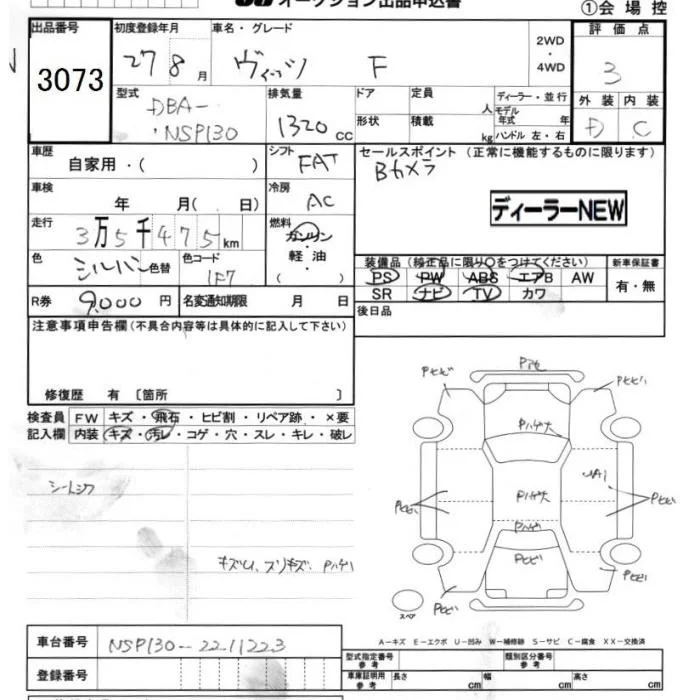 オークション出品申込書
①会場控
出品番号
3073
初度登録年月
27 8 月
車名・グレード
ヴィッツ F
2WD
・
4WD
評価点
3
外装 内装
D C
型式
DBA-
NSP130
排気量
1320 cc
ドア
形状
定員 人
積載 kg
ディーラー・並行
モデル
年式 年
ハンドル 左・右
車歴
自家用・( )
シフト
FAT
セールスポイント(正常に機能するものに限ります)
Bカメラ
ディーラーNEW
車検
年 月( 日)
冷房
AC
走行
3万5千475km
燃料
ガソリン
・
軽油
( )
色
シルバー 色替
色コード
1F7
装備品(純正品に限り○をつけてください)
PS PW ABS エアB AW
SR ナビ TV カワ
新車保証書
有・無
R券
9,000 円
名変通知期限 月 日
後日品
注意事項申告欄(不具合内容等は具体的に記入して下さい)
修復歴 有〔箇所 〕
検査員
記入欄
FW キズ・飛石・ヒビ割・リペア跡・×要
内装 キズ・汚レ・コゲ・穴・スレ・キレ・破レ
シートシワ
キズU、スリキズ、Pハゲ
Pハゲ大
Pハゲ大
Pハゲ
Pヒビ
UA1
Pヒビ
スペア
A-キズ E-エクボ U-凹み W-補修跡 S-サビ C-腐食 XX-交換済
車台番号
NSP130-2211223
登録番号
型式指定番号
参考
類別区分番号
参考
車庫証明用
参考
長さ cm
幅 cm
高さ cm